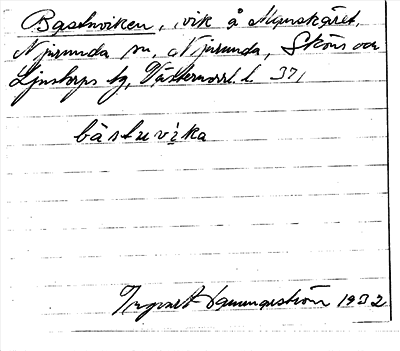 Bastuviken, vik å Alpnskäret,
Njurunda sn, Njurunda, Sköns och
Ljustorps tg, Västernorrl. l. 371
bàstuvi̱ka
Ingvart 1932